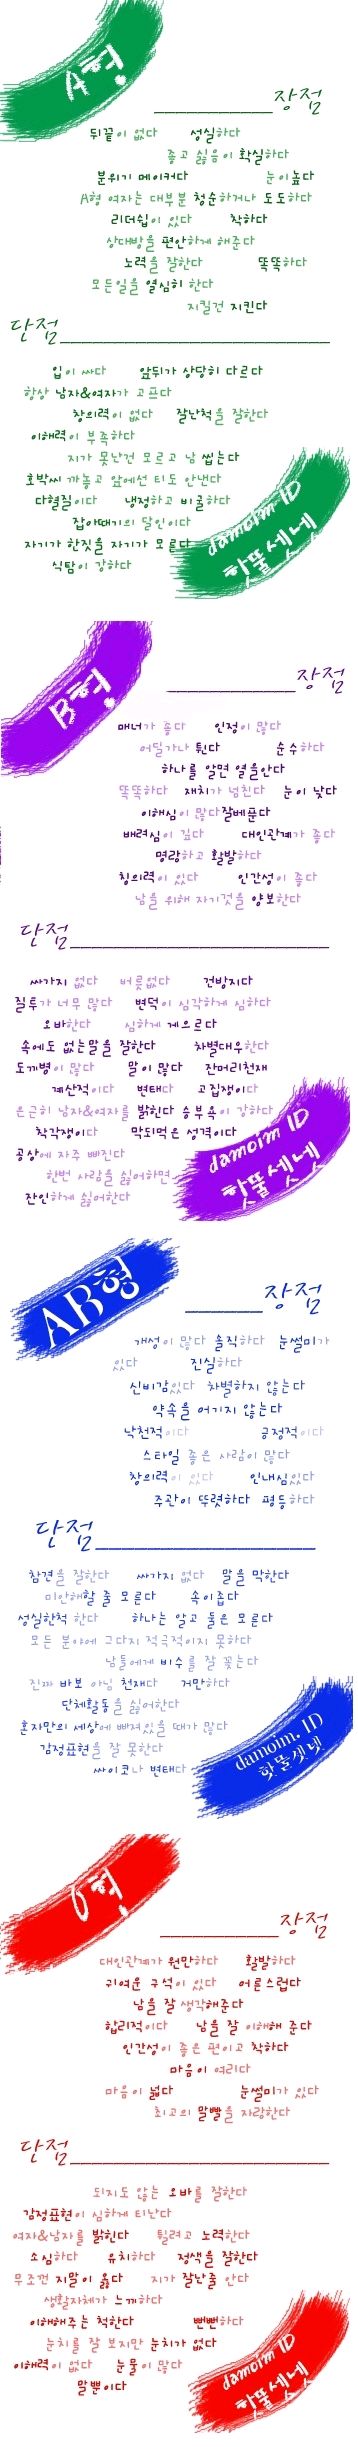 A형
장점
뒤끝이 없다 성실하다
좋고 싫음이 확실하다
분위기 메이커다 눈이높다
A형 여자는 대부분 청순하거나 도도하다
리더쉽이 있다 착하다
상대방을 편안하게 해준다
노력을 잘한다 똑똑하다
모든일을 열심히 한다
지킬건 지킨다
단점
입이 싸다 앞뒤가 상당히 다르다
항상 남자&여자가 고프다
창의력이 없다 잘난척을 잘한다
이해력이 부족하다
지가 못난건 모르고 남 씹는다
호박씨 까놓고 앞에선 티도 안낸다
다혈질이다 냉정하고 비굴하다
잡아떼기의 달인이다
자기가 한짓을 자기가 모른다
식탐이 강하다
damoim ID
핫뚤셋넷
B형
장점
매너가 좋다 인정이 많다
어딜가나 튄다 순수하다
하나를 알면 열을안다
똑똑하다 재치가 넘친다 눈이 낮다
이해심이 많다잘베푼다
배려심이 깊다 대인관계가 좋다
명랑하고 활발하다
창의력이 있다 인간성이 좋다
남을 위해 자기것을 양보한다
단점
싸가지 없다 버릇없다 건방지다
질투가 너무 많다 변덕이 심각하게 심하다
오바한다 심하게 게으르다
속에도 없는말을 잘한다 차별대우한다
도끼병이 많다 말이 많다 잔머리천재
계산적이다 변태다 고집쟁이다
은근히 남자&여자를 밝힌다 승부욕이 강하다
착각쟁이다 막되먹은 성격이다
공상에 자주 빠진다
한번 사람을 싫어하면
잔인하게 싫어한다
damoim ID
핫뚤셋넷
AB형
장점
개성이 많다 솔직하다 눈썰미가
있다 진실하다
신비감있다 차별하지 않는다
약속을 어기지 않는다
낙천적이다 긍정적이다
스타일 좋은 사람이 많다
창의력이 있다 인내심있다
주관이 뚜렷하다 평등하다
단점
참견을 잘한다 싸가지 없다 말을 막한다
미안해할 줄 모른다 속이좁다
성실한척 한다 하나는 알고 둘은 모른다
모든 분야에 그다지 적극적이지 못하다
남들에게 비수를 잘 꽂는다
진짜 바보 아님 천재다 거만하다
단체활동을 싫어한다
혼자만의 세상에 빠져있을 때가 많다
감정표현을 잘 못한다
싸이코나 변태다
damoim. ID
핫뚤셋넷
O형
장점
대인관계가 원만하다 활발하다
귀여운 구석이 있다 어른스럽다
남을 잘 생각해준다
합리적이다 남을 잘 이해해 준다
인간성이 좋은 편이고 착하다
마음이 여리다
마음이 넓다 눈썰미가 있다
최고의 말빨을 자랑한다
단점
되지도 않는 오바를 잘한다
감정표현이 심하게 티난다
여자&남자를 밝힌다 튈려고 노력한다
소심하다 유치하다 정색을 잘한다
무조껀 지말이 옳다 지가 잘난줄 안다
생활자체가 느끼하다
이해해주는 척한다 뻔뻔하다
눈치를 잘 보지만 눈치가 없다
이해력이 없다 눈물이 많다
말뿐이다
damoim ID
핫뚤셋넷